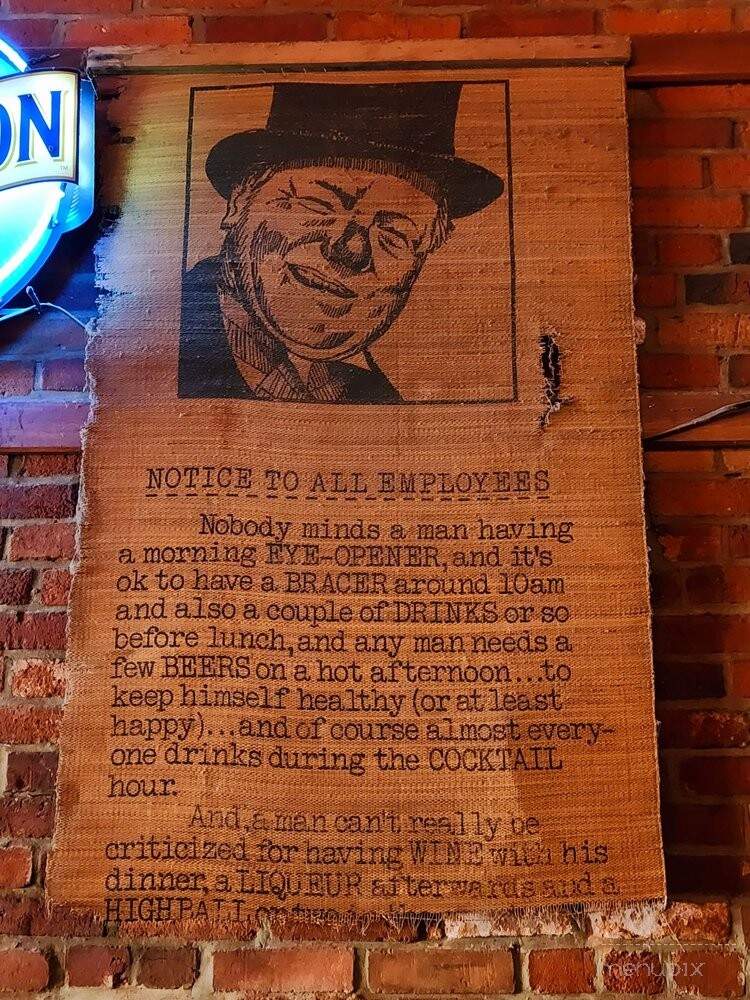 ON
TM
NOTICE TO ALL EMPLOYEES
Nobody minds a man having
a morning EYE-OPENER, and it's
ok to have a BRACER around 10am
and also a couple of DRINKS or so
before lunch, and any man needs a
few BEERS on a hot afternoon...to
keep himself healthy (or at least
happy)...and of course almost every-
one drinks during the COCKTAIL
hour.
And, a man can't really be
criticized for having WINE with his
dinner, a LIQUEUR afterwards and a
HIGHBALL or two
menupix